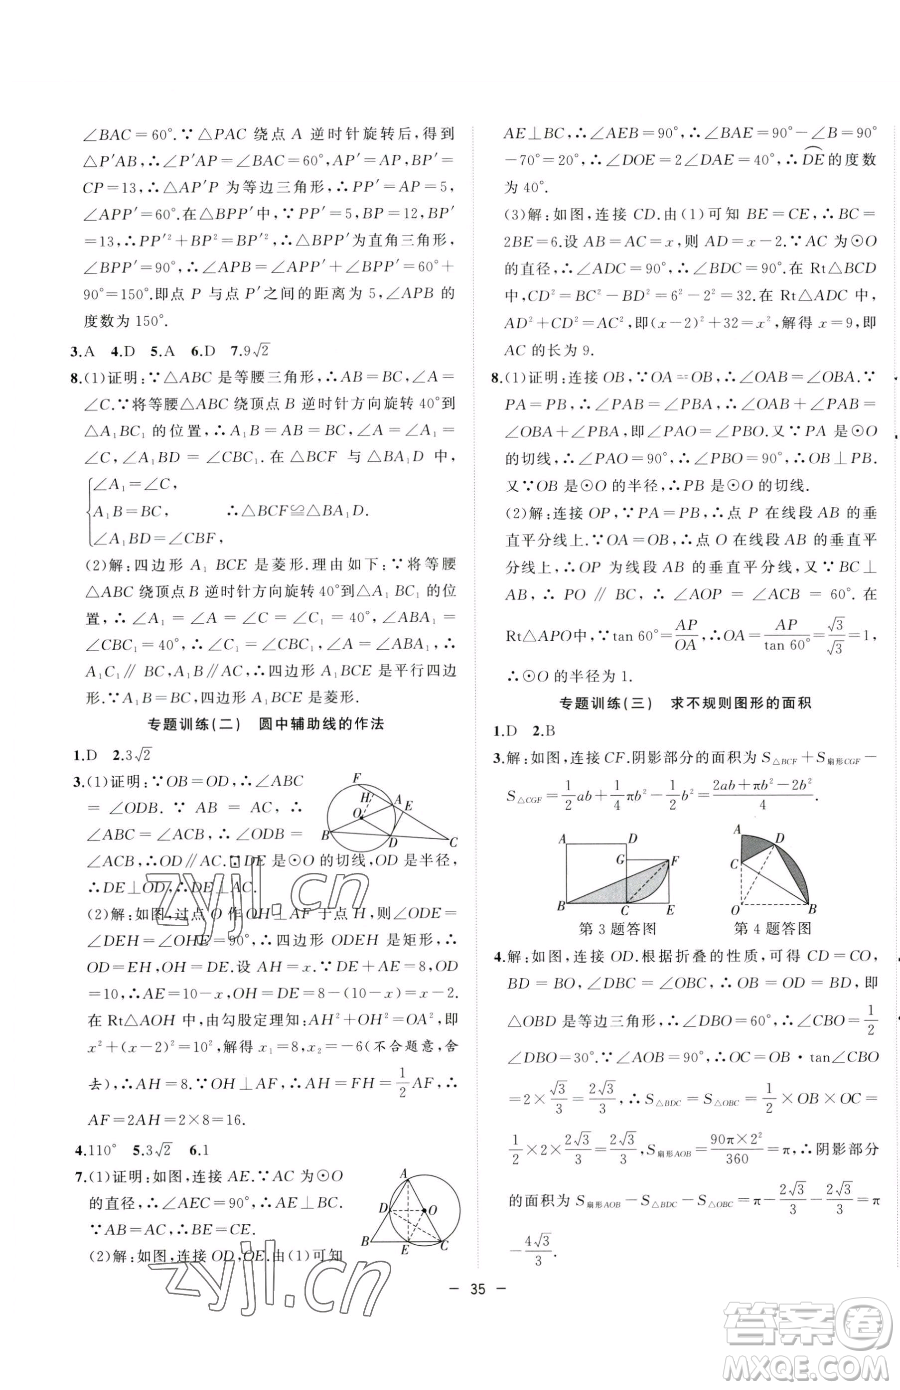 ∠BAC=60°.∵△PAC 绕点 A 逆时针旋转后,得到
△P′AB,∴∠P′AP=∠BAC=60°,AP′=AP,BP′=
CP=13,∴△AP′P 为等边三角形,∴PP′=AP=5,
∠APP′=60°.在△BPP′中,∵PP′=5,BP=12,BP′
=13,∴PP′²+BP²=BP′²,∴△BPP′为直角三角形,
∠BPP′=90°,∴∠APB=∠APP′+∠BPP′=60°+
90°=150°.即点 P 与点 P′之间的距离为 5,∠APB 的
度数为 150°.
3.A 4.D 5.A 6.D 7.9√2
8.(1)证明:∵△ABC 是等腰三角形,∴AB=BC,∠A=
∠C.∵将等腰△ABC 绕顶点 B 逆时针方向旋转 40°到
△A₁BC₁ 的位置,∴A₁B=AB=BC,∠A₁=∠A=
∠C,∠A₁BD=∠CBC₁.在△BCF 与△BA₁D 中,
{∠A₁=∠C,
A₁B=BC, ∴△BCF≌△BA₁D.
∠A₁BD=∠CBF,
(2)解:四边形 A₁BCE 是菱形.理由如下:∵将等腰
△ABC 绕顶点 B 逆时针方向旋转 40°到△A₁BC₁ 的位
置,∴∠A₁=∠A=∠C₁=∠C=40°,∠ABA₁=
∠CBC₁=40°,∴∠C₁=∠CBC₁,∠A=∠ABA₁,∴
A₁C₁∥BC,A₁B∥AC,∴四边形 A₁BCE 是平行四边
形.∵A₁B=BC,∴四边形 A₁BCE 是菱形.
专题训练(二) 圆中辅助线的作法
1.D 2.3√2
3.(1)证明:∵OB=OD,∴∠ABC
=∠ODB.∵AB=AC,∴
∠ABC=∠ACB,∴∠ODB=
∠ACB,∴OD∥AC.∵DE 是⊙O 的切线,OD 是半径,
∴DE⊥OD,∴DE⊥AC.
(2)解:如图,过点 O 作 OH⊥AF 于点 H,则∠ODE=
∠DEH=∠OHE=90°,∴四边形 ODEH 是矩形,∴
OD=EH,OH=DE.设 AH=x.∵DE+AE=8,OD
=10,∴AE=10-x,OH=DE=8-(10-x)=x-2.
在 Rt△AOH 中,由勾股定理知:AH²+OH²=OA²,即
x²+(x-2)²=10²,解得 x₁=8,x₂=-6(不合题意,舍
去),∴AH=8.∵OH⊥AF,∴AH=FH=1/2AF,∴
AF=2AH=2×8=16.
4.110° 5.3√2 6.1
7.(1)证明:如图,连接 AE.∵AC 为⊙O
的直径,∴∠AEC=90°,∴AE⊥BC.
∵AB=AC,∴BE=CE.
(2)解:如图,连接 OD,OE.由(1)可知
F
H
A
E
O
B
D
C
A
D
O
B
E
C
AE⊥BC,∴∠AEB=90°,∴∠BAE=90°-∠B=90°
-70°=20°,∴∠DOE=2∠DAE=40°,∴DE的度数
为 40°.
(3)解:如图,连接 CD.由(1)可知 BE=CE,∴BC=
2BE=6.设 AB=AC=x,则 AD=x-2.∵AC 为⊙O
的直径,∴∠ADC=∠BDC=90°.在 Rt△BCD
中,CD²=BC²-BD²=6²-2²=32.在 Rt△ADC 中,
AD²+CD²=AC²,即(x-2)²+32=x²,解得 x=9,即
AC 的长为 9.
8.(1)证明:连接 OB,∵OA=OB,∴∠OAB=∠OBA.∵
PA=PB,∴∠PAB=∠PBA,∴∠OAB+∠PAB=
∠OBA+∠PBA,即∠PAO=∠PBO.又∵PA 是⊙O
的切线,∴∠PAO=90°,∴∠PBO=90°,∴OB⊥PB.
又∵OB 是⊙O 的半径,∴PB 是⊙O 的切线.
(2)解:连接 OP,∵PA=PB,∴点 P 在线段 AB 的垂
直平分线上.∵OA=OB,∴点 O 在线段 AB 的垂直平
分线上,∴OP 为线段 AB 的垂直平分线.又∵BC⊥
AB,∴PO∥BC,∴∠AOP=∠ACB=60°.在
Rt△APO中,∵tan 60°=AP/OA,∴OA=AP/tan60°=√3/√3=1,
∴⊙O 的半径为 1.
专题训练(三) 求不规则图形的面积
1.D 2.B
3.解:如图,连接 CF.阴影部分的面积为 S△BCF+S扇形CGF-
S△CGF=1/2ab+1/4πb²-1/2b²=(2ab+πb²-2b²)/4.
A
D
G
F
B
C
E
第 3 题答图
A
D
C
O
B
第 4 题答图
4.解:如图,连接 OD.根据折叠的性质,可得 CD=CO,
BD=BO,∠DBC=∠OBC,∴OB=OD=BD,即
△OBD 是等边三角形,∴∠DBO=60°,∴∠CBO=1/2
∠DBO=30°.∵∠AOB=90°,∴OC=OB·tan∠CBO
=2×√3/3=2√3/3,∴S△BDC=S△OBC=1/2×OB×OC=
1/2×2×2√3/3=2√3/3,S扇形AOB=90π×2²/360=π,∴阴影部分
的面积为 S扇形AOB-S△BDC-S△OBC=π-2√3/3-2√3/3=π
-4√3/3.
- 35 -
zyjl.cn
zyjl.cn
答案圈
MXQE.COM